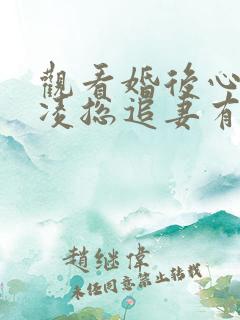 觀看婚後心
凌總追妻有
趙继偉
未任同意禁止转载